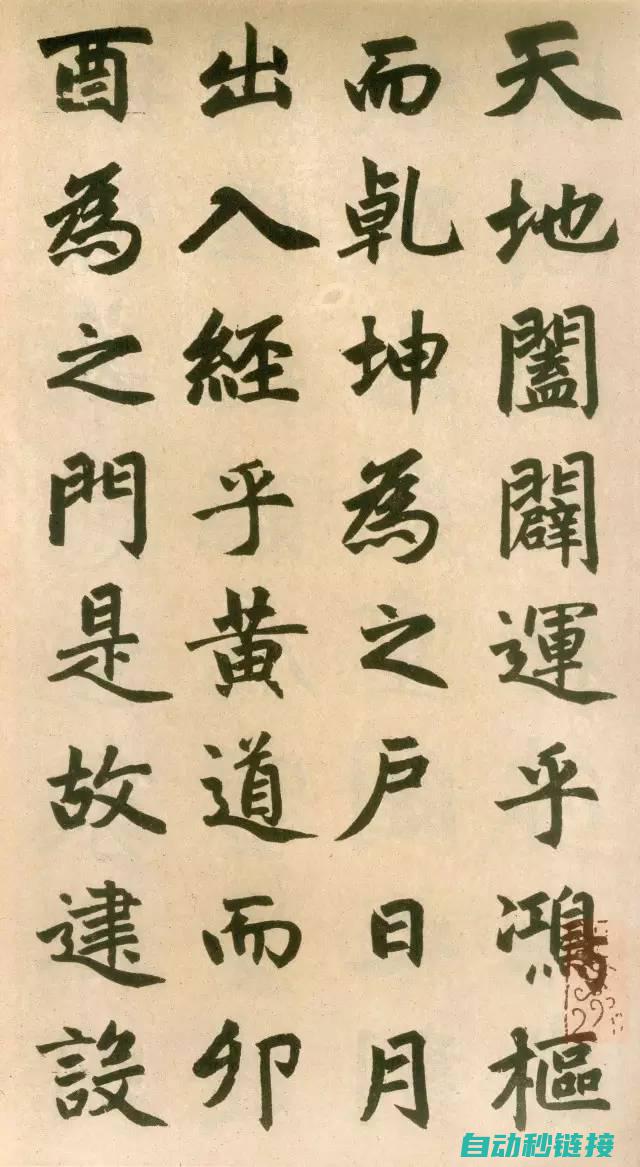 天地闔闢運乎鴻樞
而乹坤為之户日月
出入經乎黄道而卯
酉為之門是故建設
自动秒链接